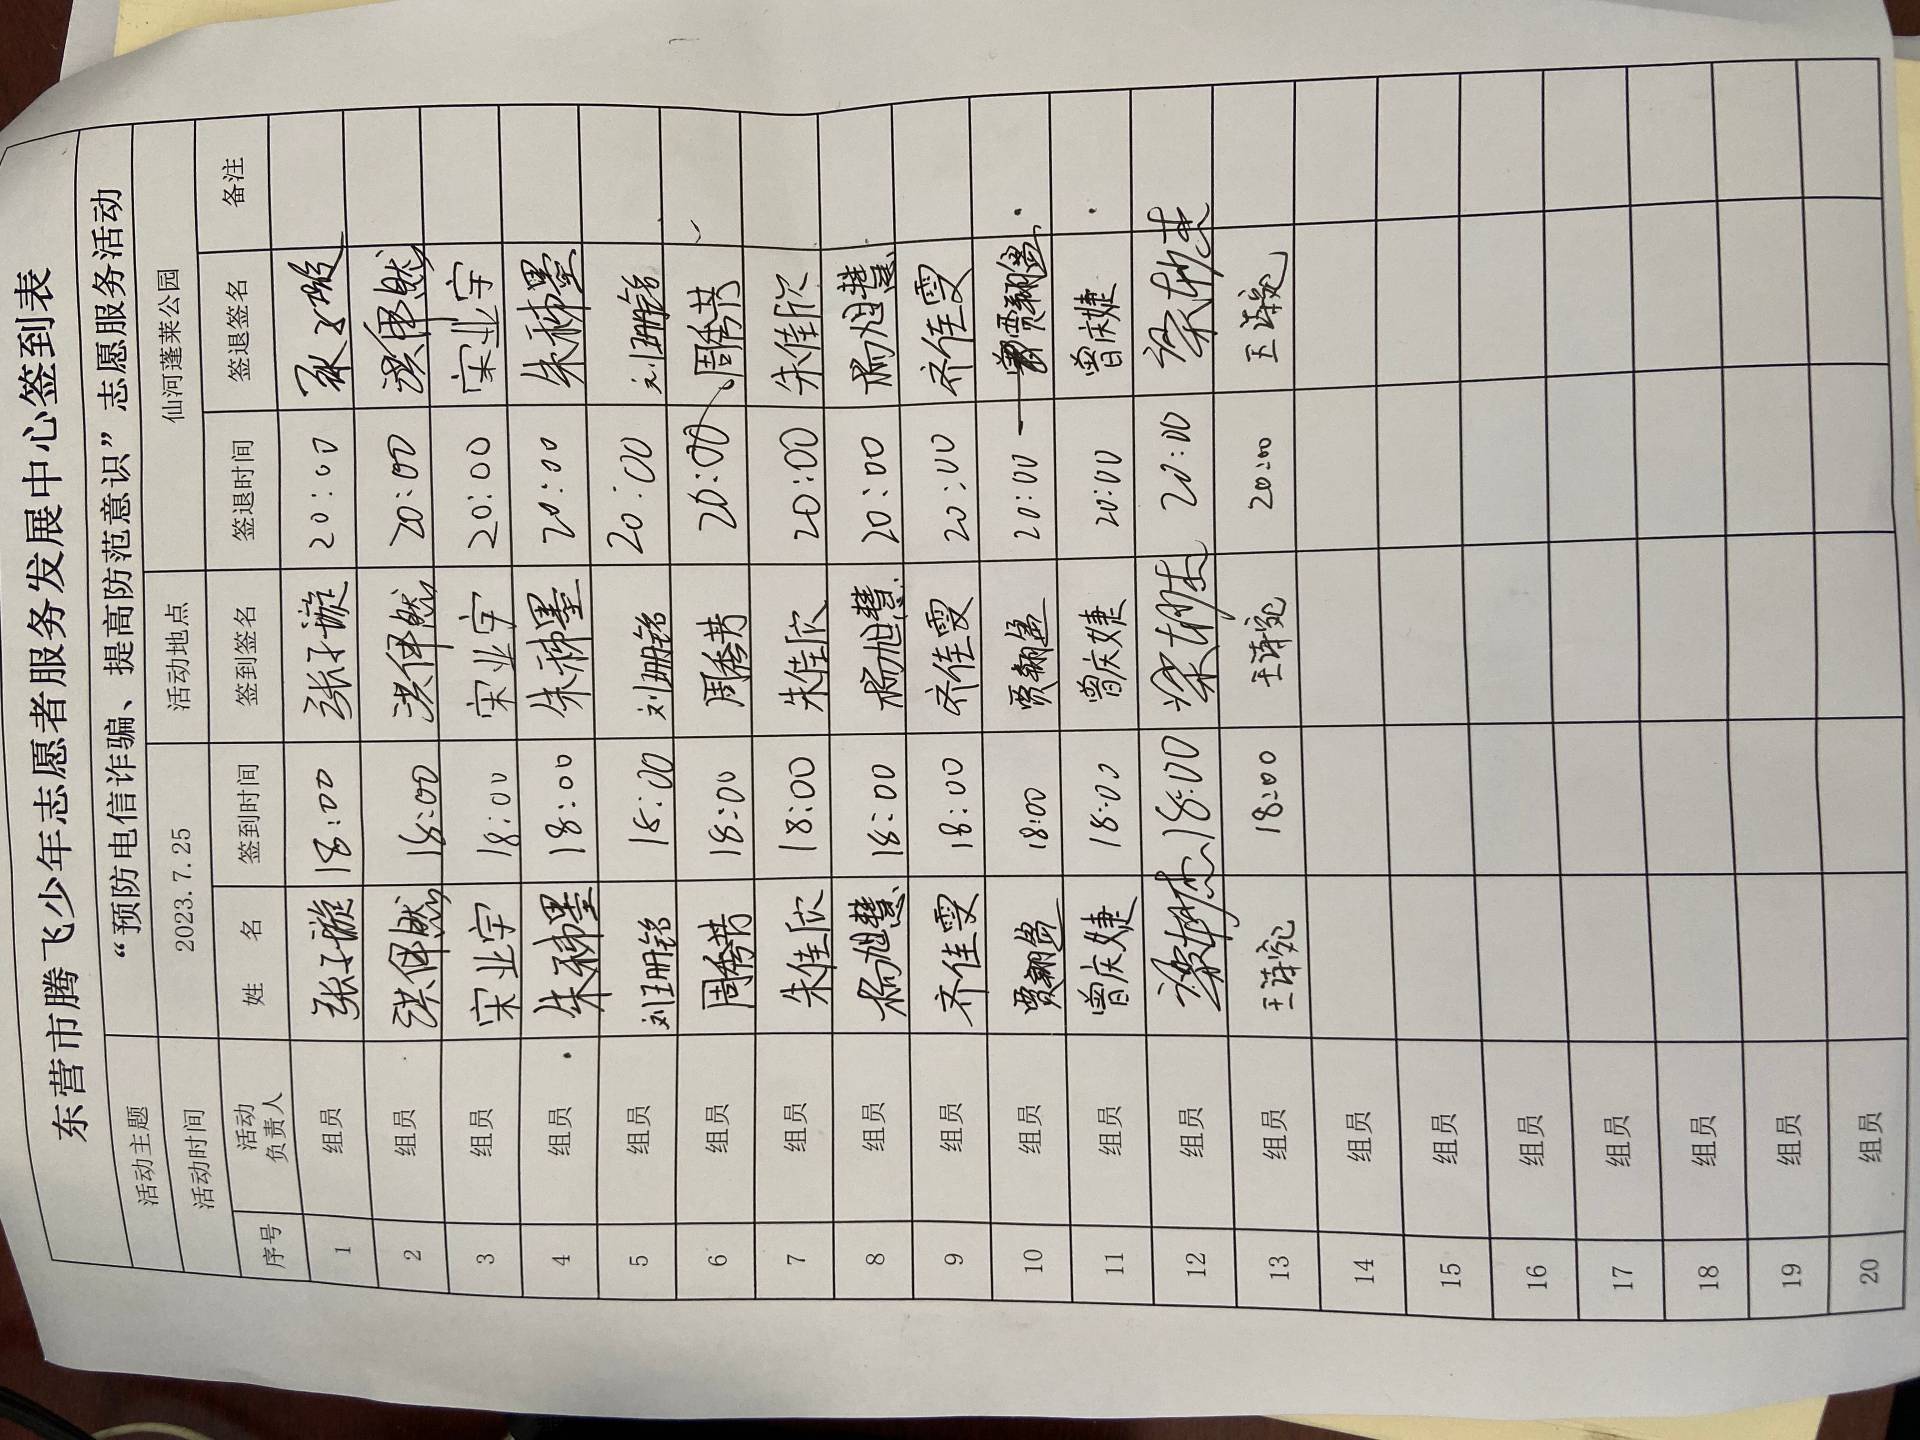 东营市腾飞少年志愿者服务发展中心签到表
活动主题 “预防电信诈骗、提高防范意识”志愿服务活动
活动时间 2023.7.25 活动地点 仙河蓬莱公园
序号 活动负责人 姓名 签到时间 签到签名 签退时间 签退签名 备注
1 组员 张子漩 18:00 张子漩 20:00
2 组员 18:00 20:00
3 组员 宋业宇 18:00 宋业宇 20:00 宋业宇
4 组员 朱稀墨 18:00 朱稀墨 20:00 朱稀墨
5 组员 刘珊铭 18:00 刘珊铭 20:00 刘珊铭
6 组员 周秀芳 18:00 周秀芳 20:00
7 组员 朱佳欣 18:00 朱佳欣 20:00 朱佳欣
8 组员 杨旭慧 18:00 杨旭慧 20:00 杨旭慧
9 组员 齐佳雯 18:00 齐佳雯 20:00 齐佳雯
10 组员 18:00 20:00
11 组员 曾庆婕 18:00 曾庆婕 20:00 曾庆婕
12 组员 18:00 20:00
13 组员 王诗宛 18:00 王诗宛 20:00 王诗宛
14 组员
15 组员
16 组员
17 组员
18 组员
19 组员
20 组员